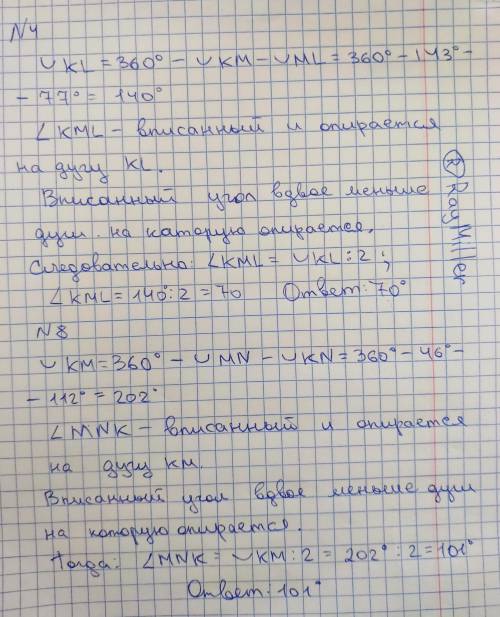 N4
◡KL = 360° - ◡KM - ◡ML = 360° - 143° -
- 77° = 140°
∠KML - вписанный и опирается
на дугу KL.
Вписанный угол вдвое меньше
дуги на каторую опирается.
Следовательно: ∠KML = ◡KL : 2 ;
∠KML = 140° : 2 = 70 Ответ: 70°
N8
◡KM = 360° - ◡MN - ◡KN = 360° - 46° -
- 112° = 202°
∠MNK - вписанный и опирается
на дугу КМ.
Вписанный угол вдвое меньше дуги
на которую опирается.
Тогда: ∠MNK = ◡KM : 2 = 202° : 2 = 101°
Ответ: 101°
® RayMiller